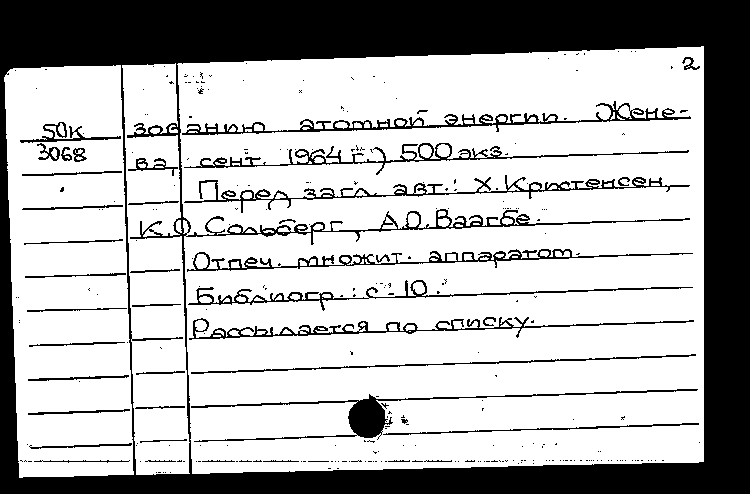 2
50К зованию атомной энергии. Жене-
3068 ва, сент. 1964 г.) 500 экз.
Перед загл. авт.: Х. Кристенсен,
К.О. Сольберг, А.О. Ваагбе.
Отпеч. множит. аппаратом.
Библиогр.: с. 10.
Рассылается по списку.